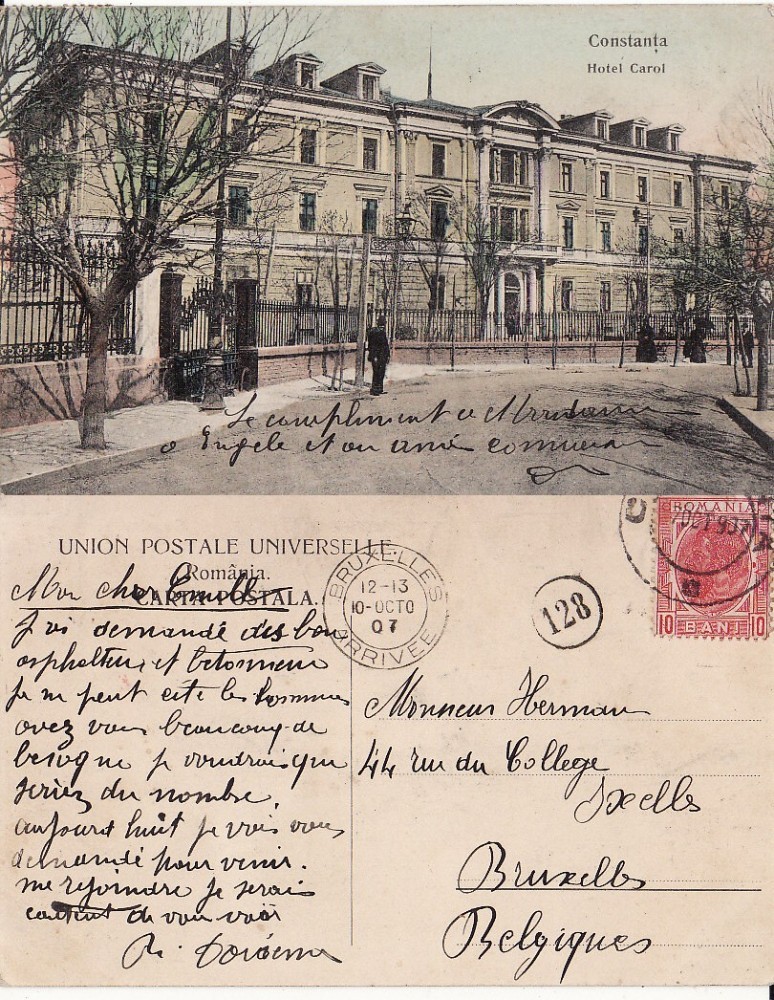 Constanța
Hotel Carol
Le compliment a
Engele et au
UNION POSTALE UNIVERSELLE
România.
CARTA POSTALA.
BRUXELLES
12-13
10-OCTO
07
ARRIVÉE
128
ROMANIA
10 BANI 10
Mon cher
J vi demandé des bon
asphalteur et betonneur
je ne peut les hommes
avez vous beaucoup de
besogne je voudrais que
seriez du nombre
aujourd huit je vois vous
demandé pour venir.
me rejoindre je serais
content de vous voir
Monsieur Herman
44 rue du College
Ixelles
Bruxelles
Belgiques